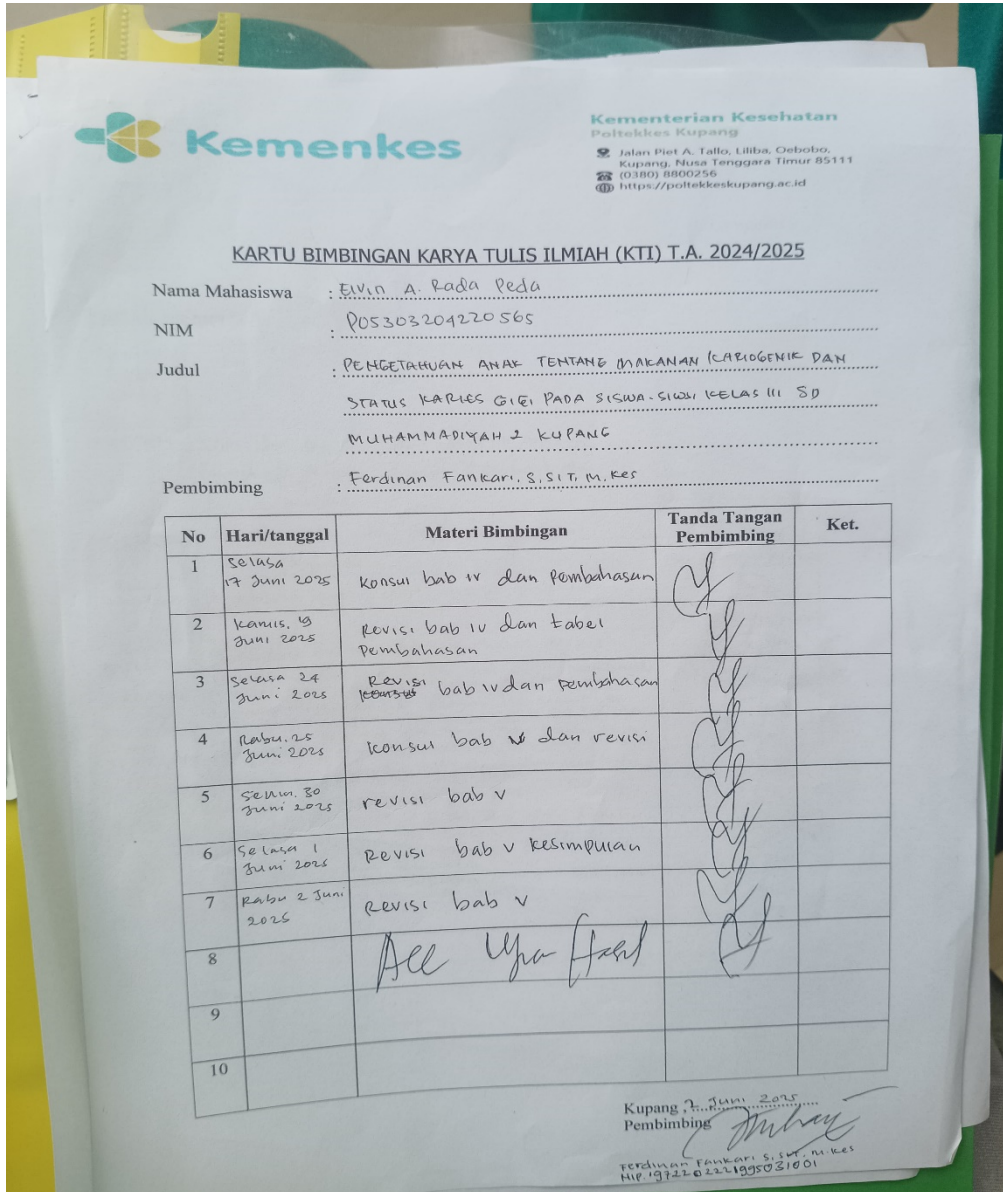 Kemenkes
Kementerian Kesehatan
Poltekkes Kupang
Jalan Piet A. Tallo, Liliba, Oebobo,
Kupang, Nusa Tenggara Timur 85111
(0380) 8800256
https://poltekkeskupang.ac.id
KARTU BIMBINGAN KARYA TULIS ILMIAH (KTI) T.A. 2024/2025
Nama Mahasiswa : Elvin A. Rada Peda
NIM : PO5303204220565
Judul : PENGETAHUAN ANAK TENTANG MAKANAN KARIOGENIK DAN
STATUS KARIES GIGI PADA SISWA-SISWI KELAS III SD
MUHAMMADIYAH 2 KUPANG
Pembimbing : Ferdinan Fankari, S.SiT, M.Kes
No Hari/tanggal Materi Bimbingan Tanda Tangan Pembimbing Ket.
1 Selasa 17 Juni 2025 Konsul bab IV dan Pembahasan
2 Kamis, 19 Juni 2025 Revisi bab IV dan tabel Pembahasan
3 Selasa 24 Juni 2025 Revisi bab IV dan pembahasan
4 Rabu, 25 Juni 2025 Konsul bab V dan revisi
5 Senin, 30 Juni 2025 revisi bab V
6 Selasa 1 Juni 2025 Revisi bab V Kesimpulan
7 Rabu 2 Juni 2025 Revisi bab V
8 Acc
9
10
Kupang, 2 Juni 2025
Pembimbing
Ferdinan Fankari S.SiT. M.Kes